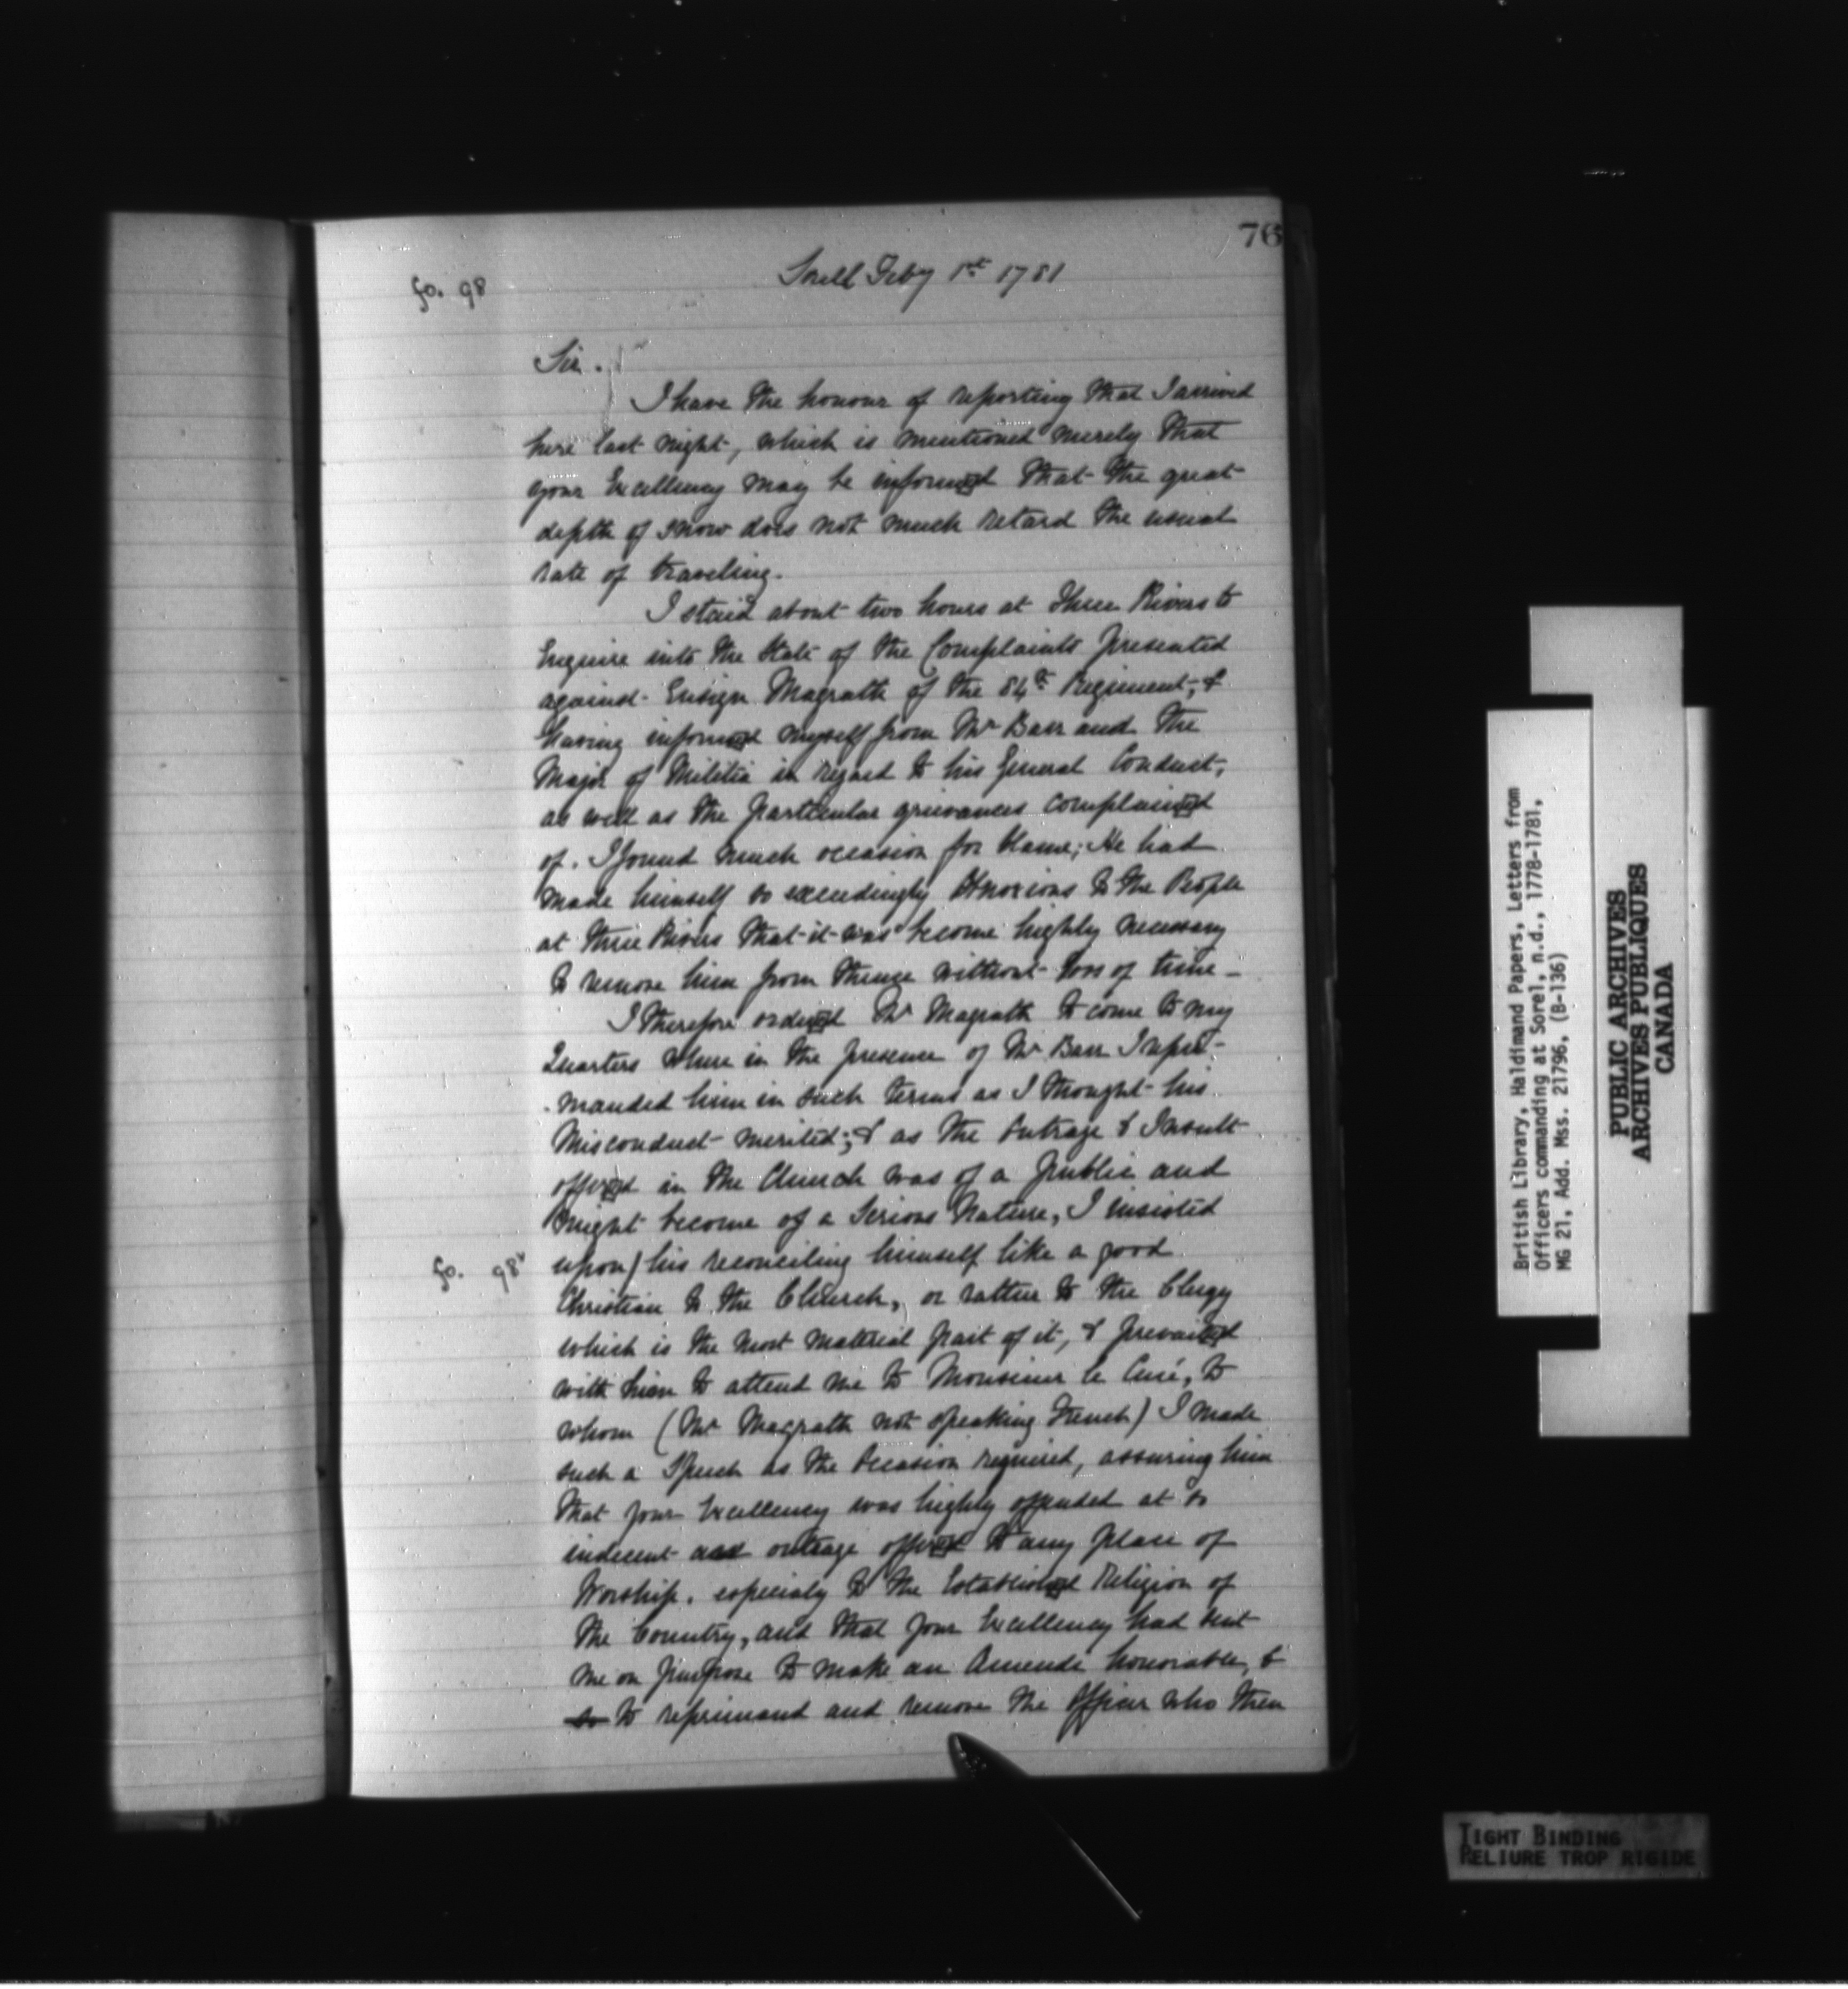 76
fo. 98
Sorell Feby 1st 1781
Sir.
I have the honour of reporting that I arrived
here last night, which is mentioned merely that
your Excellency may be informed that the great
depth of snow does not much retard the usual
rate of traveling.
I staid about two hours at Three Rivers to
Enquire into the State of the Complaints presented
against Ensign Magrath of the 84th Regiment, &
having informed myself from Mr Barr and the
Major of Militia in regard to his General Conduct,
as well as the particular grievances complained
of. I found much occasion for blame; He had
made himself so exceedingly obnoxious to the People
at three Rivers that it was become highly necessary
to remove him from thence without loss of time_
I therefore ordered Mr Magrath to come to my
Quarters where in the presence of Mr Barr I repri-
-manded him in such terms as I thought his
Misconduct merited; & as the outrage & Insult
offered in the Church was of a public and
might become of a Serious Nature, I insisted
fo. 98v
upon) his reconciling himself like a good
Christian to the Church, or rather to the Clergy
which is the most material part of it, & prevailed
with him to attend me to Monsieur le Curé, to
whom (Mr Magrath not speaking French) I made
such a Speech as the Occasion required, assuring him
that your Excellency was highly offended at so
indecent and outrage offered to any place of
Worship, especialy to the Established Religion of
the Country, and that your Excellency had sent
me on purpose to make an Amende honorable, &
so to reprimand and remove the Officer who then
British Library, Haldimand Papers, Letters from
Officers commanding at Sorel, n.d., 1778-1781,
MG 21, Add. Mss. 21796, (B-136)
PUBLIC ARCHIVES
ARCHIVES PUBLIQUES
CANADA
TIGHT BINDING
RELIURE TROP RIGIDE